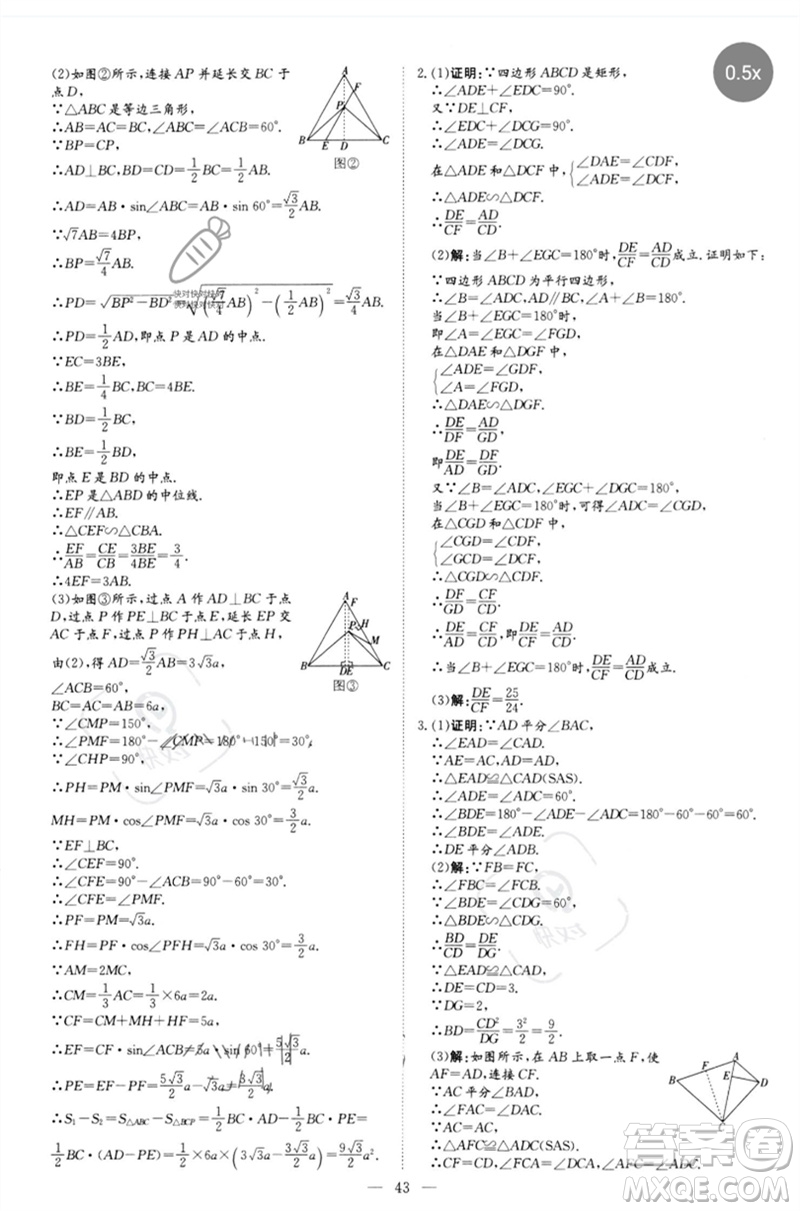 (2)如图②所示,连接 AP 并延长交 BC 于
点 D,
∵△ABC 是等边三角形,
∴AB=AC=BC,∠ACB=60°.
∵BP=CP,
∴AD⊥BC,BD=CD=1/2BC=1/2AB.
∴AD=AB·sin∠ABC=AB·sin 60°=√3/2AB.
∵√7AB=4BP,
∴BP=√7/4AB.
∴PD=√(BP²-BD²)=√((√7/4AB)²-(1/2AB)²)=√3/4AB.
∴PD=1/2AD,即点 P 是 AD 的中点.
∵EC=3BE,
∴BE=1/4BC,BC=4BE.
∵BD=1/2BC,
∴BE=1/2BD,
即点 E 是 BD 的中点.
∴EP 是△ABD 的中位线.
∴EF∥AB.
∴△CEF∽△CBA.
∴EF/AB=CE/CB=3BE/4BE=3/4.
∴4EF=3AB.
(3)如图③所示,过点 A 作 AD⊥BC 于点
D,过点 P 作 PE⊥BC 于点 E,延长 EP 交
AC 于点 F,过点 P 作 PH⊥AC 于点 H,
由(2),得 AD=√3/2AB=3√3a,
∠ACB=60°,
BC=AC=AB=6a,
∵∠CMP=150°,
∴∠PMF=180°-∠CMP=180°-150°=30°,
∵∠CHP=90°,
∴PH=PM·sin∠PMF=√3a·sin30°=√3/2a.
MH=PM·cos∠PMF=√3a·cos30°=3/2a.
∵EF⊥BC,
∴∠CEF=90°.
∴∠CFE=90°-∠ACB=90°-60°=30°.
∴∠CFE=∠PMF.
∴PF=PM=√3a.
∴FH=PF·cos∠PFH=√3a·cos30°=3/2a.
∵AM=2MC,
∴CM=1/3AC=1/3×6a=2a.
∵CF=CM+MH+HF=5a,
∴EF=CF·sin∠ACB=5a·sin 60°=5√3/2a.
∴PE=EF-PF=5√3/2a-√3a=3√3/2a.
∴S₁-S₂=S△ABC-S△BCP=1/2BC·AD-1/2BC·PE=
1/2BC·(AD-PE)=1/2×6a×(3√3a-3√3/2a)=9√3/2a².
A
P
B
E
D
C
图②
A
P
H
M
B
D
E
C
图③
2.(1)证明:∵四边形 ABCD 是矩形,
∴∠ADE+∠EDC=90°.
又∵DE⊥CF,
∴∠EDC+∠DCG=90°.
∴∠ADE=∠DCG.
在△ADE 和△DCF 中,{∠DAE=∠CDF,
∠ADE=∠DCF.
∴△ADE∽△DCF.
∴DE/CF=AD/CD.
(2)解:当∠B+∠EGC=180°时,DE/CF=AD/CD成立.证明如下:
∵四边形 ABCD 为平行四边形,
∴∠B=∠ADC,AD∥BC,∠A+∠B=180°.
当∠B+∠EGC=180°时,
即∠A=∠EGC=∠FGD,
在△ADE 和△DGF 中,
{∠ADE=∠GDF,
∠A=∠FGD.
∴△DAE∽△DGF.
∴DE/DF=AD/GD.
即DE/AD=DF/GD.
又∵∠B=∠ADC,∠EGC+∠DGC=180°,
当∠B+∠EGC=180°时,可得∠ADC=∠DGC,
在△CGD 和△CDF 中,
{∠CGD=∠CDF,
∠GCD=∠DCF.
∴△CGD∽△CDF.
∴DF/GD=CF/CD.
∴DE/AD=CF/CD,即DE/CF=AD/CD.
∴当∠B+∠EGC=180°时,DE/CF=AD/CD成立.
(3)解:DE/CF=25/24.
3.(1)证明:∵AD 平分∠BAC,
∴∠EAD=∠CAD.
∵AE=AC,AD=AD,
∴△EAD≌△CAD(SAS).
∴∠ADE=∠ADC=60°.
∴∠BDE=180°-∠ADE-∠ADC=180°-60°-60°=60°.
∴∠BDE=∠ADE.
∴DE 平分∠ADB.
(2)解:∵FB=FC,
∴∠FBC=∠FCB.
∵∠BDE=∠GDC=60°,
∴△BDE∽△CDG.
∴BD/CD=DE/DG.
∵△EAD≌△CAD,
∴DE=CD=3.
∵DG=2,
∴BD=CD²/DG=3²/2=9/2.
(3)解:如图所示,在 AB 上取一点 F,使
AF=AD,连接 CF.
∵AC 平分∠BAD,
∴∠FAC=∠DAC.
∵AC=AC,
∴△AFC≌△ADC(SAS).
∴CF=CD,∠FCA=∠DCA,∠AFC=∠ADC.
A
F
E
B
D
C
43
0.5x
快对
快对
答案圈